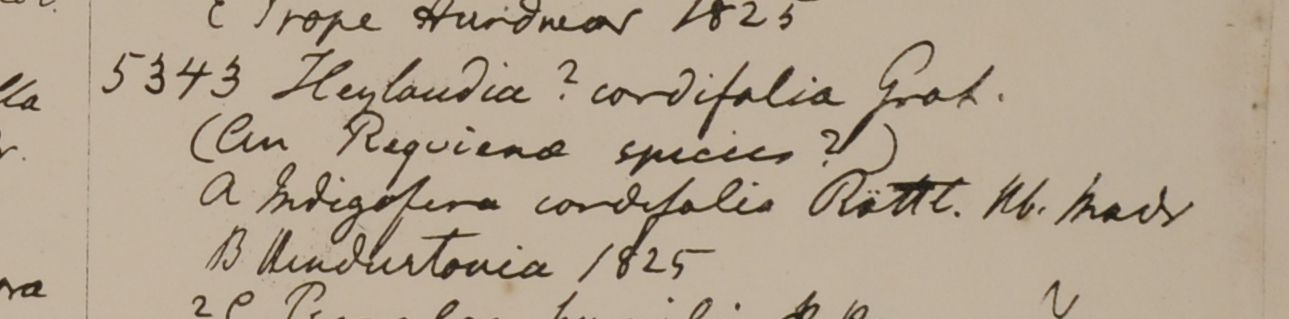 C Prope Hurdwar 1825
5343 Heylandia? cordifolia Grah.
(An Requienæ species?)
A Indigofera cordifolia Röttl. Hb. Madr
B Hindustania 1825